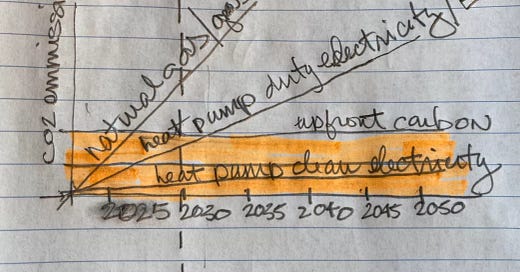 CO2 emmissi
natural gas/gas
heat pump duty electricity/
upfront carbon
heat pump clean electricity
2025 2030 2035 2040 2045 2050